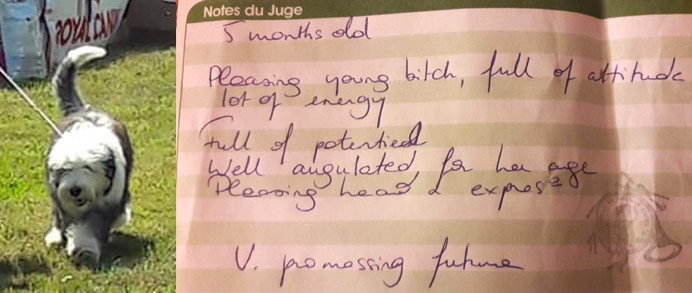 ROYAL CAN
Notes du Juge
5 months old
Pleasing young bitch, full of attitude
lot of energy
Full of potentiel
Well angulated, for her age
Pleasing head & expres°
V. promossing future